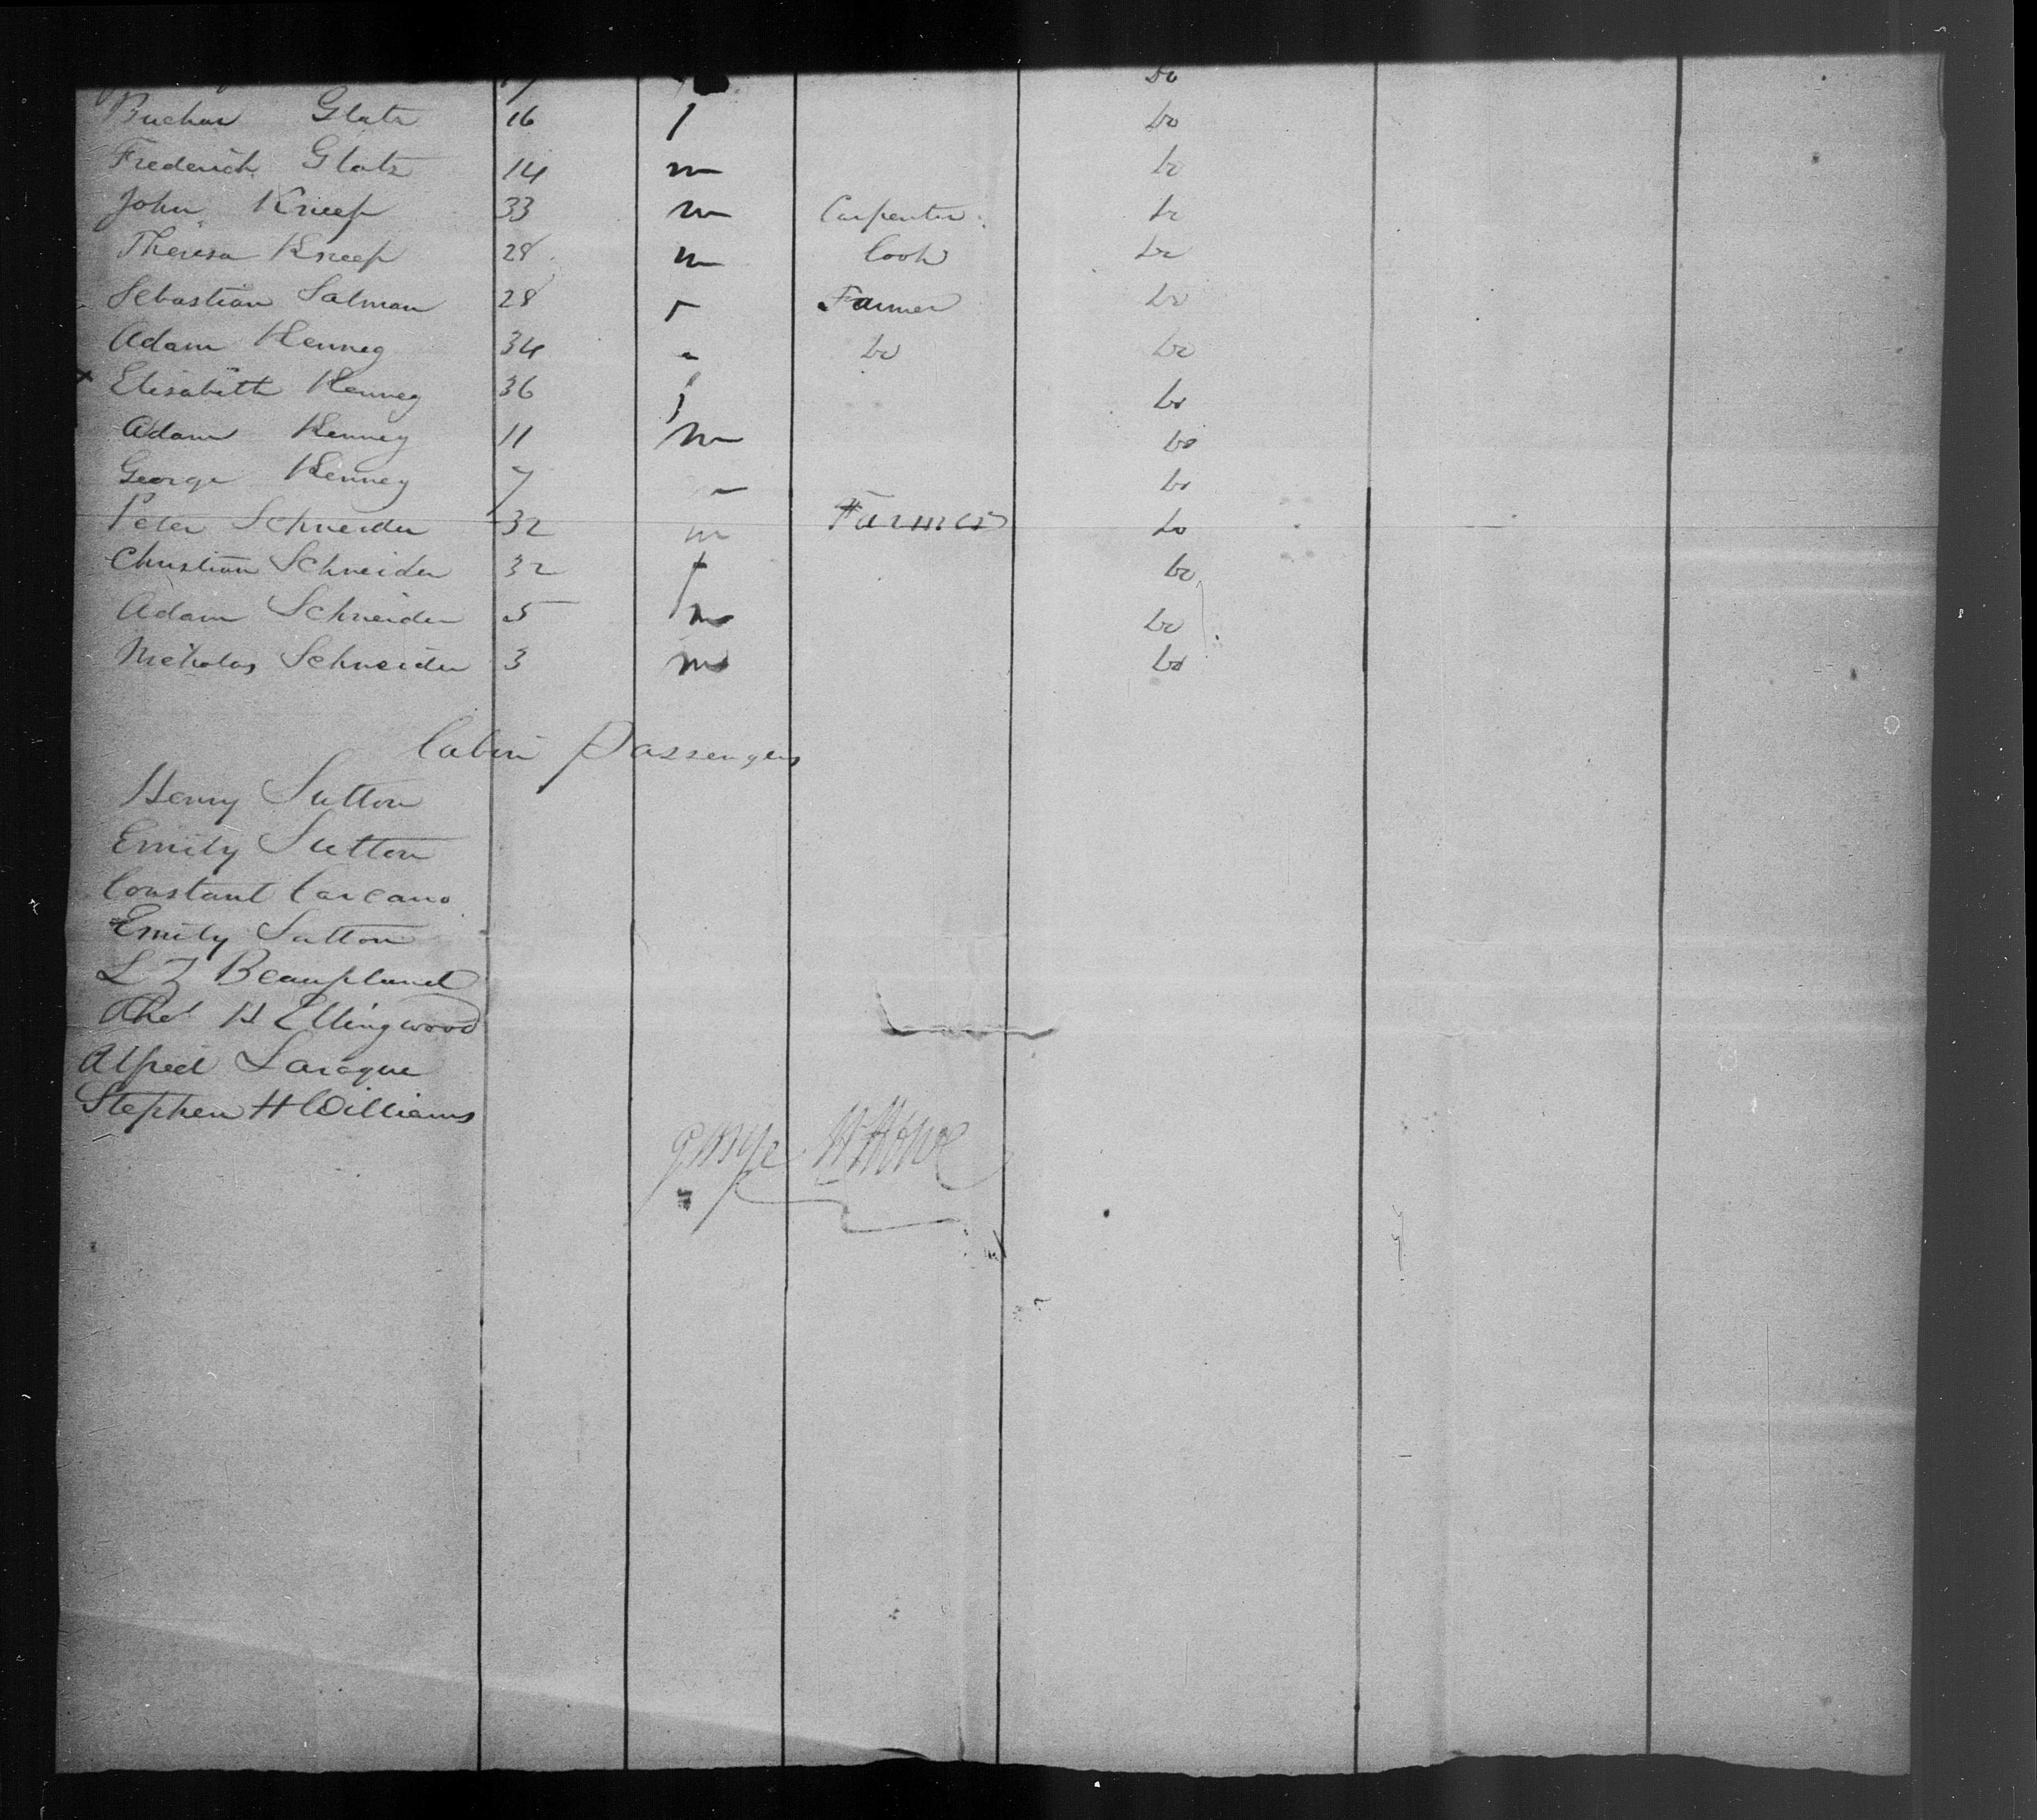 Do
Buchar Glatz 16 f Do
Frederick Glatz 14 m Do
John Kneep 33 m Carpenter Do
Theresa Kneep 28 m Cook Do
Sebastian Salman 28 Farmer Do
Adam Kenneg 34 Do Do
Elisabeth Kenneg 36 f Do
Adam Kenney 11 m Do
George Kenney 7 Do
Peter Schneider 32 m Farmer Do
Christian Schneider 32 f Do
Adam Schneider 5 m Do
Nicholas Schneider 3 m Do
Cabin Passengers
Henry Sutton
Emily Sutton
Constant Carcano
Emily Sutton
L Z Beaupland
H Ellingwood
Alfred Laraque
Stephen H Williams
George W Howe